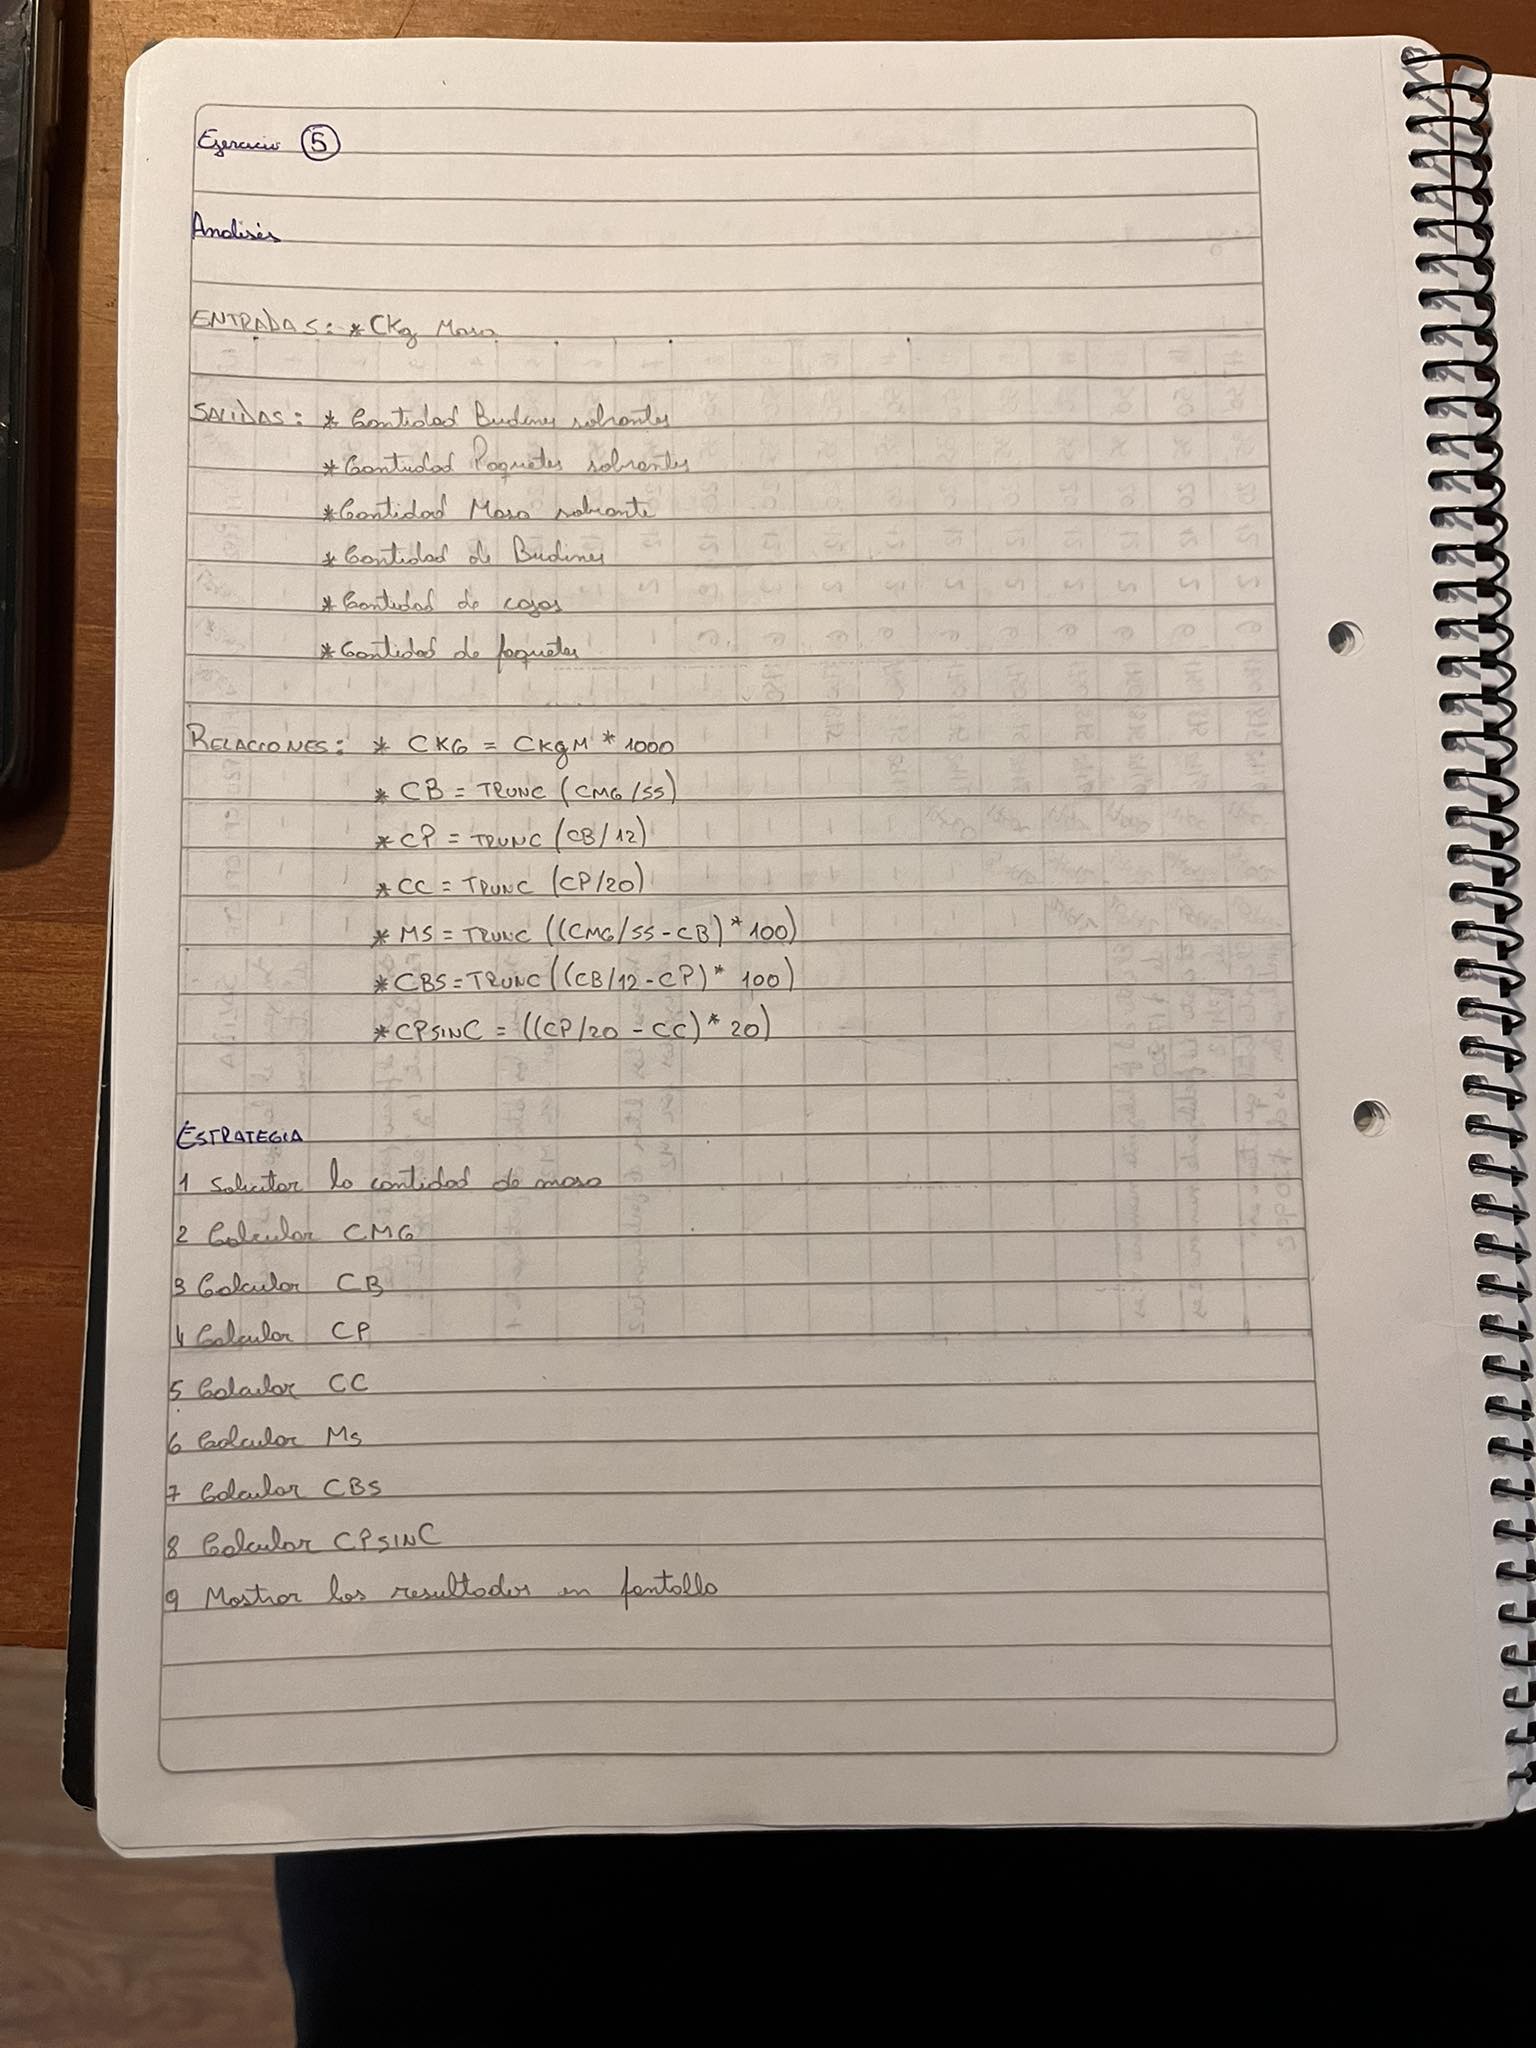 Ejercicio 5
Analisis
ENTRADAS: * CKg Masa
SALIDAS: * Cantidad Budines sobrantes
* Cantidad Paquetes sobrantes
* Cantidad Masa sobrante
* Cantidad de Budines
* Cantidad de cajas
* Cantidad de paquetes
RELACIONES: * CKG = CKgM * 1000
* CB = TRUNC (CMG/55)
* CP = TRUNC (CB/12)
* CC = TRUNC (CP/20)
* MS = TRUNC ((CMG/55 - CB) * 100)
* CBS = TRUNC ((CB/12 - CP) * 100)
* CPSINC = ((CP/20 - CC) * 20)
ESTRATEGIA
1 Solicitar la cantidad de masa
2 Calcular CMG
3 Calcular CB
4 Calcular CP
5 Calcular CC
6 Calcular Ms
7 Calcular CBS
8 Calcular CPSINC
9 Mostrar los resultados en pantalla